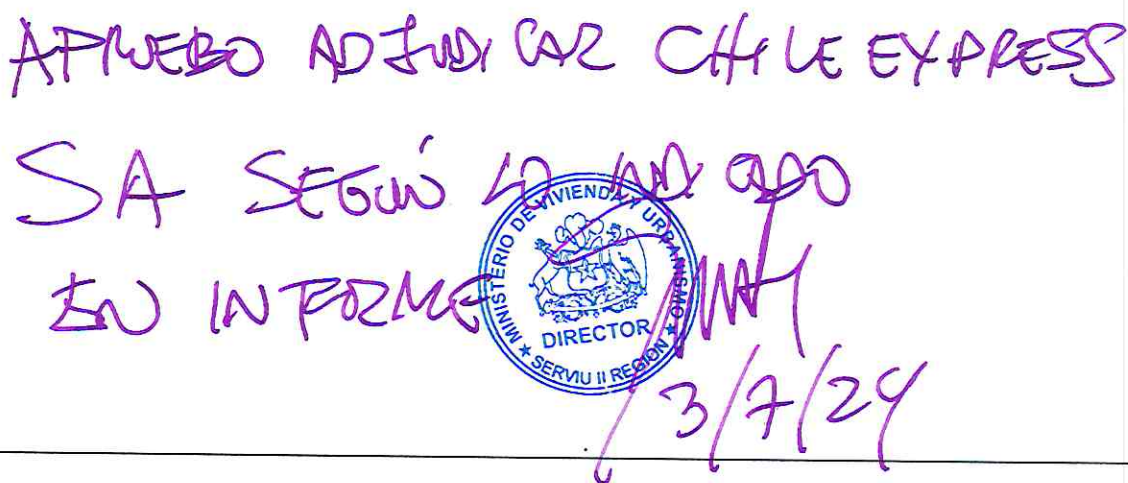 APRUEBO ADJUDICAR CHILEEXPRESS
SA SEGÚN LO INDICADO
EN INFORME
MINISTERIO DE VIVIENDA Y URBANISMO
DIRECTOR
★ SERVIU II REGION ★
3/7/24